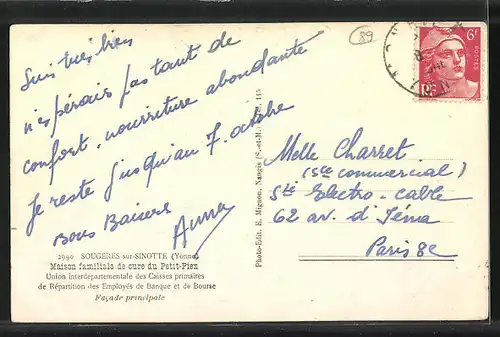 89
6f
POSTES
RF
Suis très bien
n'espérais pas tant de
confort, nourriture abondante
Je reste jusqu'au 7. octobre
Bons Baisers
Anna
2990 SOUGÈRES-sur-SINOTTE (Yonne)
Maison familiale de cure du Petit-Pien
Union Interdépartementale des Caisses primaires
de Répartition des Employés de Banque et de Bourse
Façade principale
Photo-Edit. E. Mignon, Nangis (S.-et-M.) 145
Melle Charret
(sce commercial)
Sté Electro-cable
62 av. d'Iéna
Paris 8e